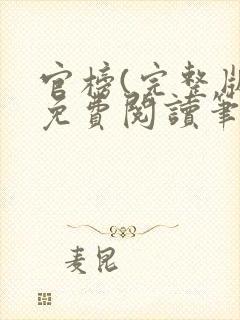 官榜(完整版
免費閱讀筆
麦昆